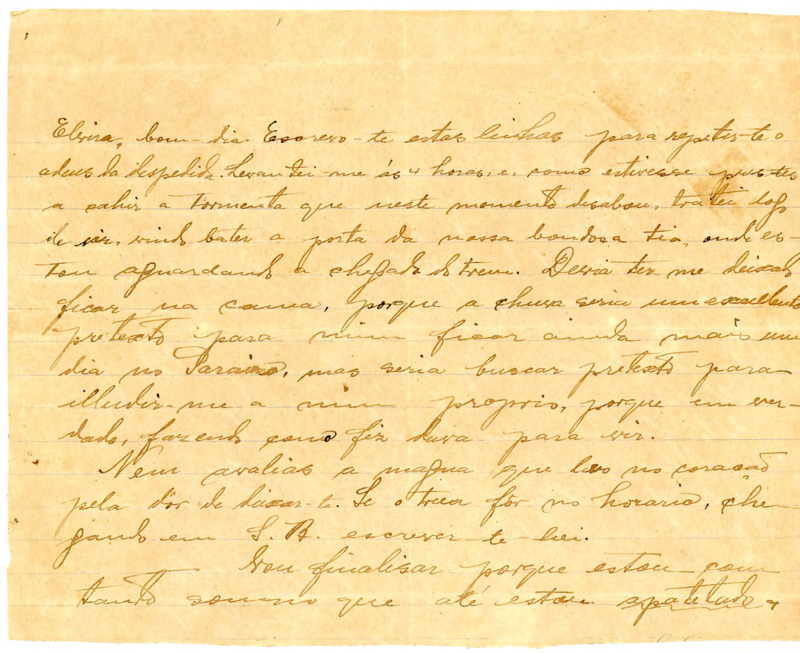 Elvira, bom-dia. Escrevo-te estas linhas para repetir-te o
adeus da despedida. Levantei-me ás 4 horas, e, como estivesse prestes
a cahir a tormenta que neste momento desabou, tratei logo
de vir, vindo bater a porta da nossa bondosa tia, onde es-
tou aguardando a chegada do trem. Devia ter me deixado
ficar na cama, porque a chuva seria um excellente
pretexto para mim ficar ainda mais um
dia no Paraiso, mas seria buscar pretexto para
illudir-me a mim proprio, porque em ver-
dade, fazendo como fiz dava para vir.
Nem avalias a magua que levo no coração
pela dôr de deixar-te. Se o trem fôr no horario, che
gando em S. B. escrever-te-hei.
Vou finalisar porque estou com
tanto somno que até estou